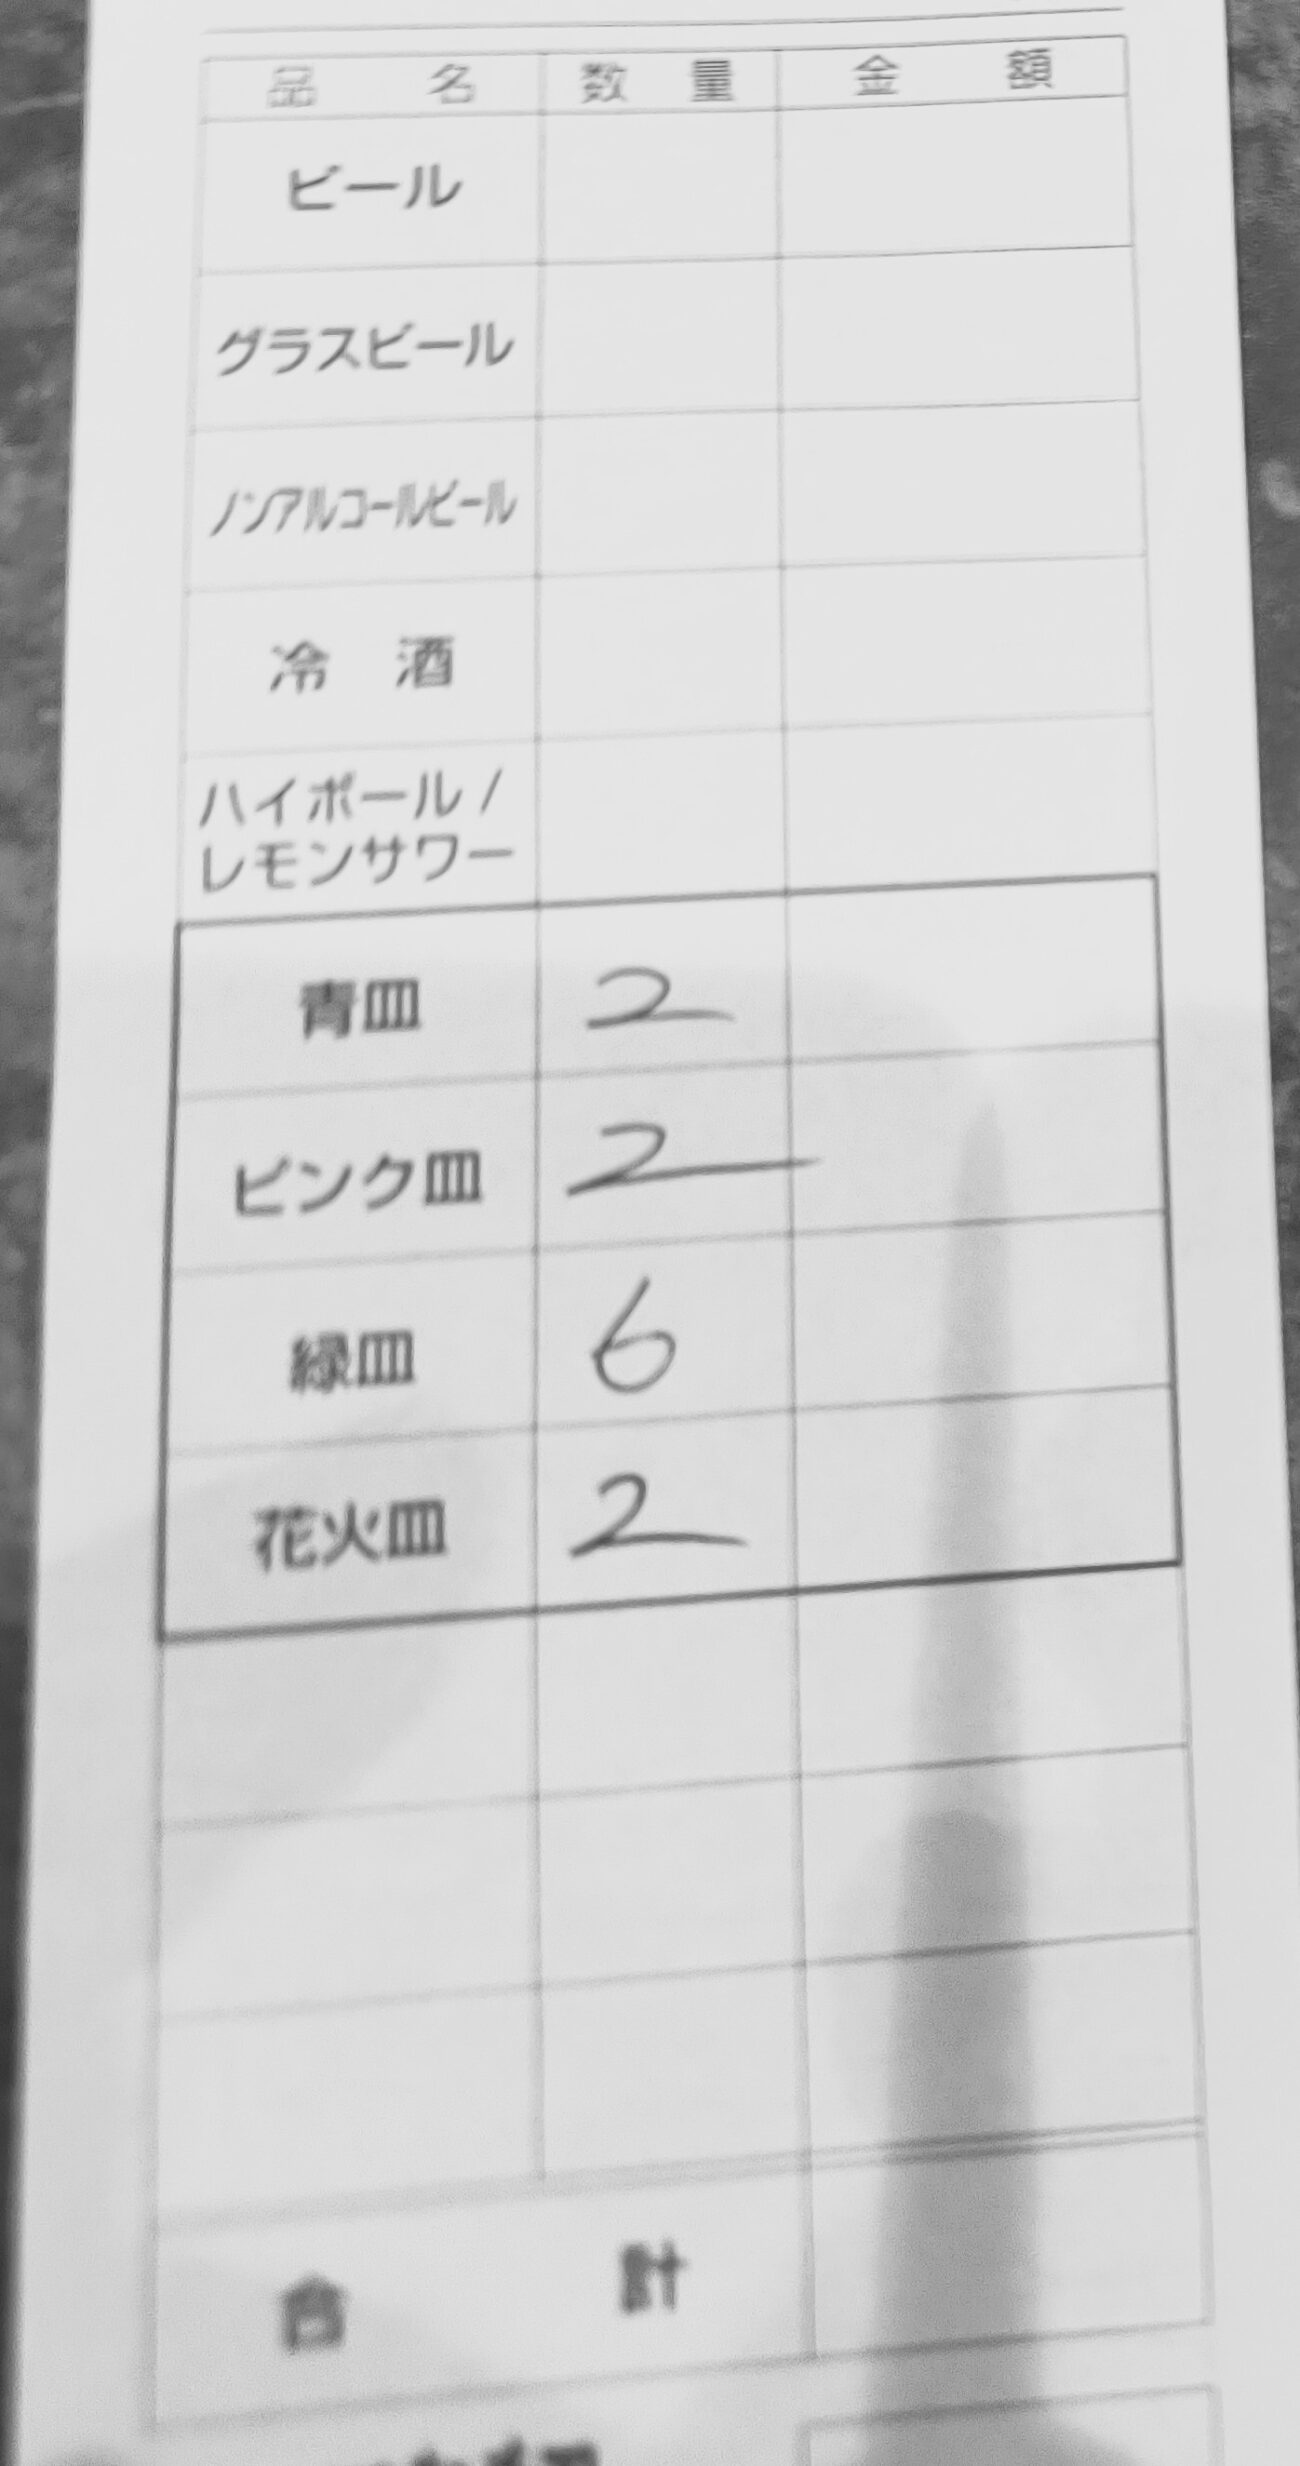 品名 数量 金額
ビール
グラスビール
ノンアルコールビール
冷酒
ハイボール /
レモンサワー
青皿 2
ピンク皿 2
緑皿 6
花火皿 2
合計